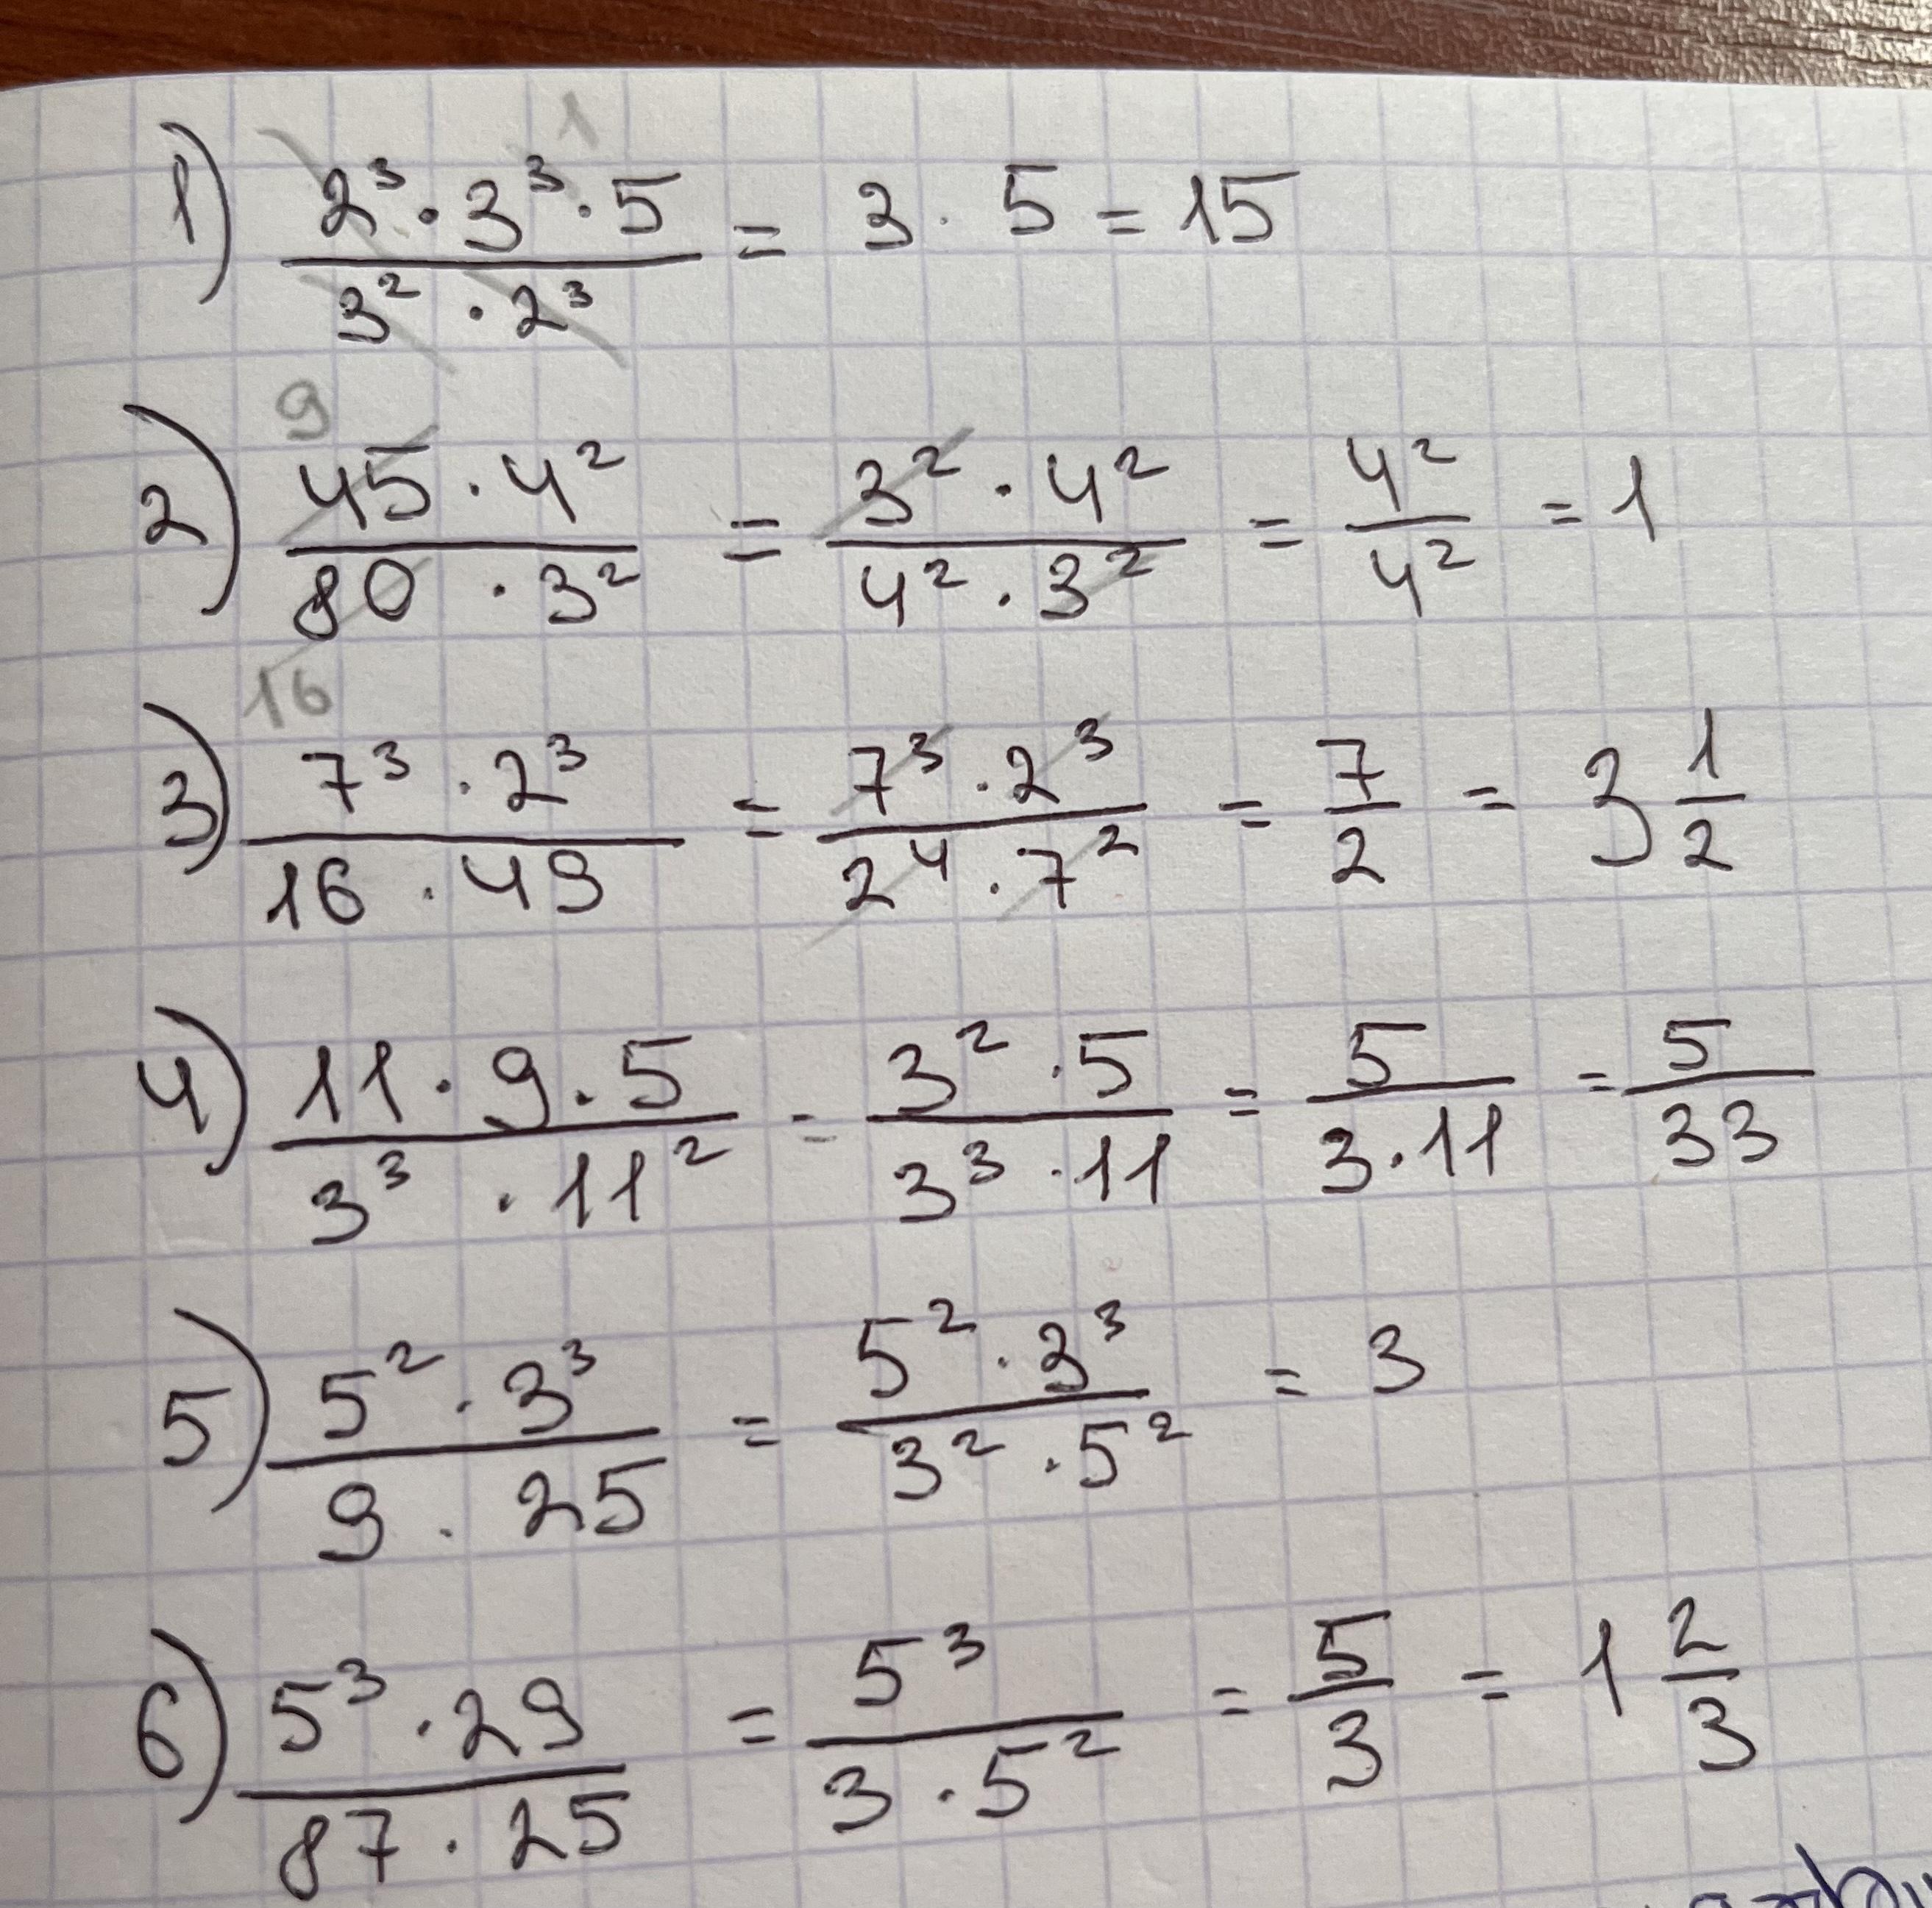 1) (2³ · 3³ · 5)/(3² · 2³) = 3 · 5 = 15
2) (45 · 4²)/(80 · 3²) = (3² · 4²)/(4² · 3²) = 4²/4² = 1
3) (7³ · 2³)/(16 · 49) = (7³ · 2³)/(2⁴ · 7²) = 7/2 = 3 1/2
4) (11 · 9 · 5)/(3³ · 11²) = (3² · 5)/(3³ · 11) = 5/(3 · 11) = 5/33
5) (5² · 3³)/(9 · 25) = (5² · 3³)/(3² · 5²) = 3
6) (5³ · 29)/(87 · 25) = 5³/(3 · 5²) = 5/3 = 1 2/3